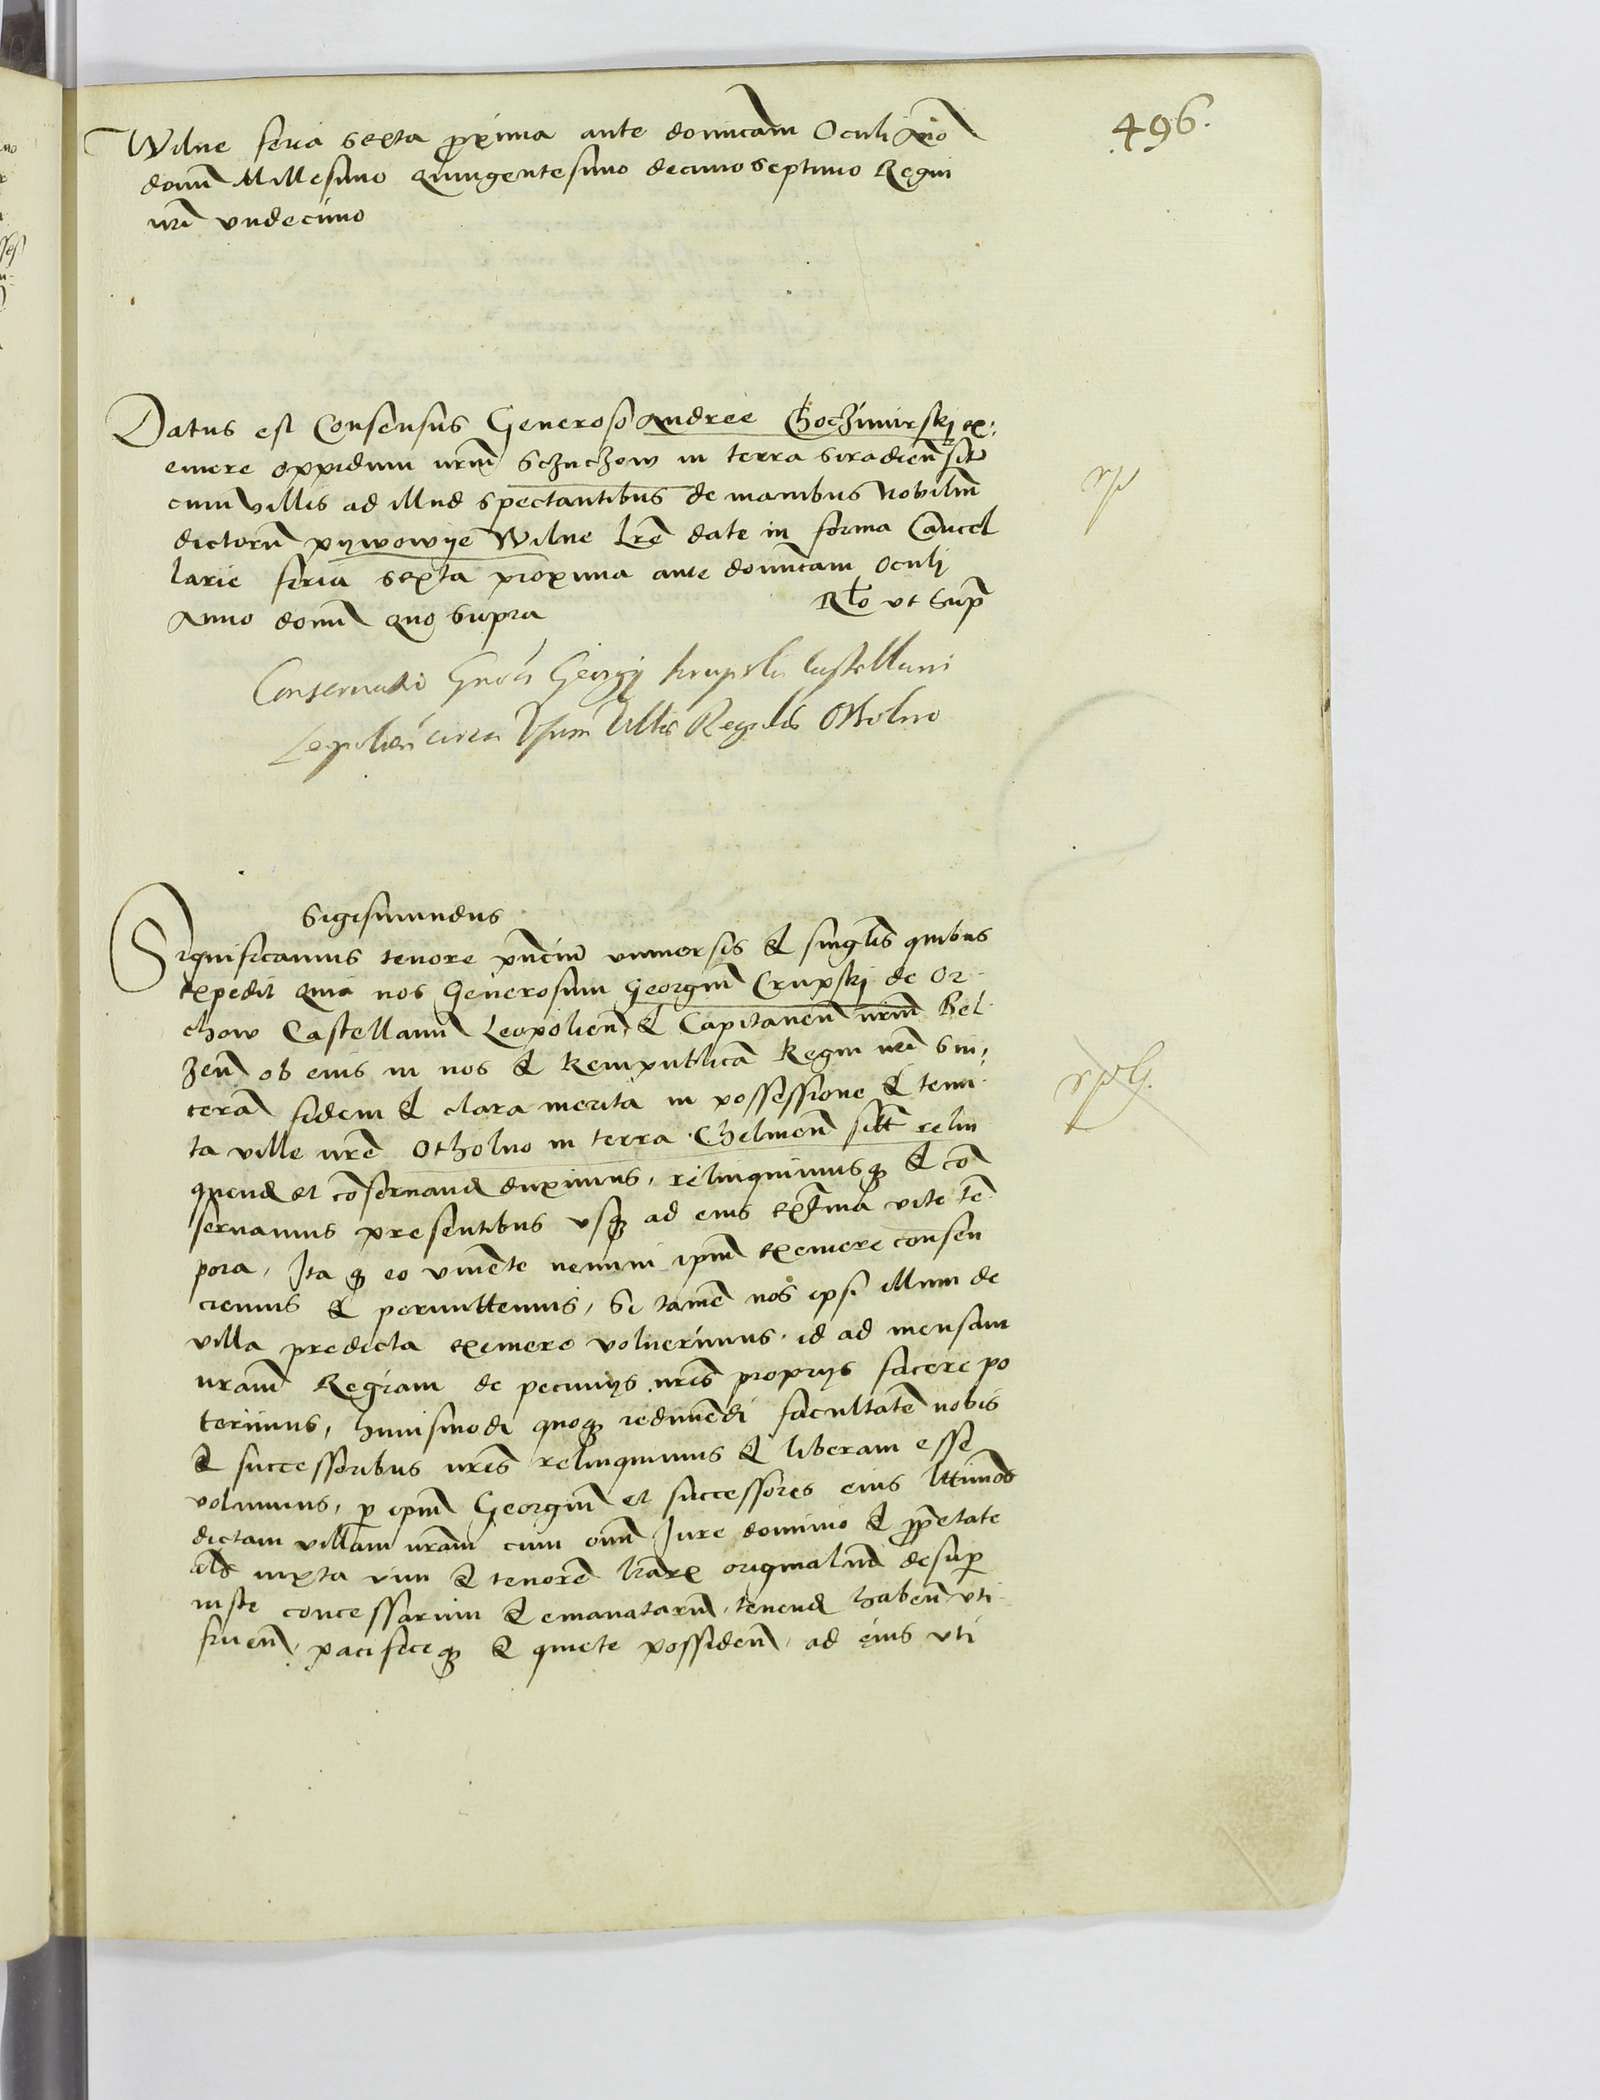 496.
Wilne feria sexta proxima ante dominicam Oculi Anno
domini Millesimo Quingentesimo decimo septimo Regni
nri vndecimo
Datus est Consensus Generoso Andree Choczimirskj ex,
emere oppidum nrum Sczuczow in terra Siradien situ
cum villis ad illud spectantibus de manibus Nobilium
dictorum pywowije Wilne Lre date in forma Cancel
larie feria sexta proxima ante dominicam Oculj
Anno domini quo supra Rlo vt Supra
Conservatio Gnosi Georgij Krupski Castellani
Leopolien circa Usum Villae Regalis Otholno
Sigismundus
Significamus tenore pntium vniuersis & singulis quibus
expedit Quia nos Generosum Georgium Crupskj de Or
chow Castellanum Leopolien & Capitaneum nrum Bel
zen ob eius in nos & Rempublicam Regni nri sin,
ceram fidem & clara merita in possessione & tenu
ta ville nre Otholno in terra Chelmen sitt relin
quend et conseruand duximus, relinquimusq & con
seruamus presentibus vsq ad eius extrema vite tem
pora, Ita q eo viuente nemini ipsum exemere consen
ciemus & permittemus, Si tamen nos ipsi illum de
villa predicta exemere voluerimus, id ad mensam
nram Regiam de pecunijs nris proprijs facere po
terimus, huiusmodi quoq redimendi facultatem nobis
& successoribus nris relinquimus & liberam esse
volumus, p ipsum Georgium et successores eius lttimos
dictam villam nram cum omni Jure dominio & proprietate
als iuxta vim & tenorem lrarum originalium desuper
iuste concessarum & emanatarum, tenend haben vti
fruen, pacificeq & quiete possiden, ad eius vti